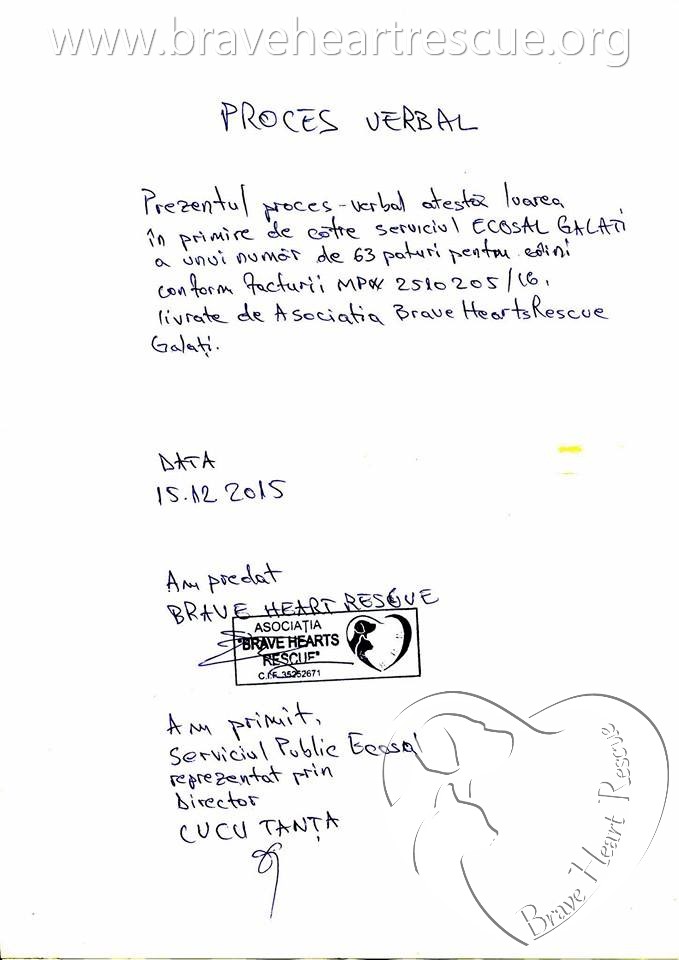 www.braveheartrescue.org
PROCES VERBAL
Prezentul proces-verbal atestă luarea
în primire de către serviciul ECOSAL GALATI
a unui număr de 63 paturi pentru câini
conform facturii 2510205/16,
livrate de Asociatia Brave HeartsRescue
Galați.
DATA
15.12 2015
Am predat
BRAVE HEART RESCUE
ASOCIAȚIA
"BRAVE HEARTS
RESCUE"
C.I.F. 35252671
Am primit,
Serviciul Public Ecosal
reprezentat prin
Director
CUCU TANȚA
Brave Heart Rescue